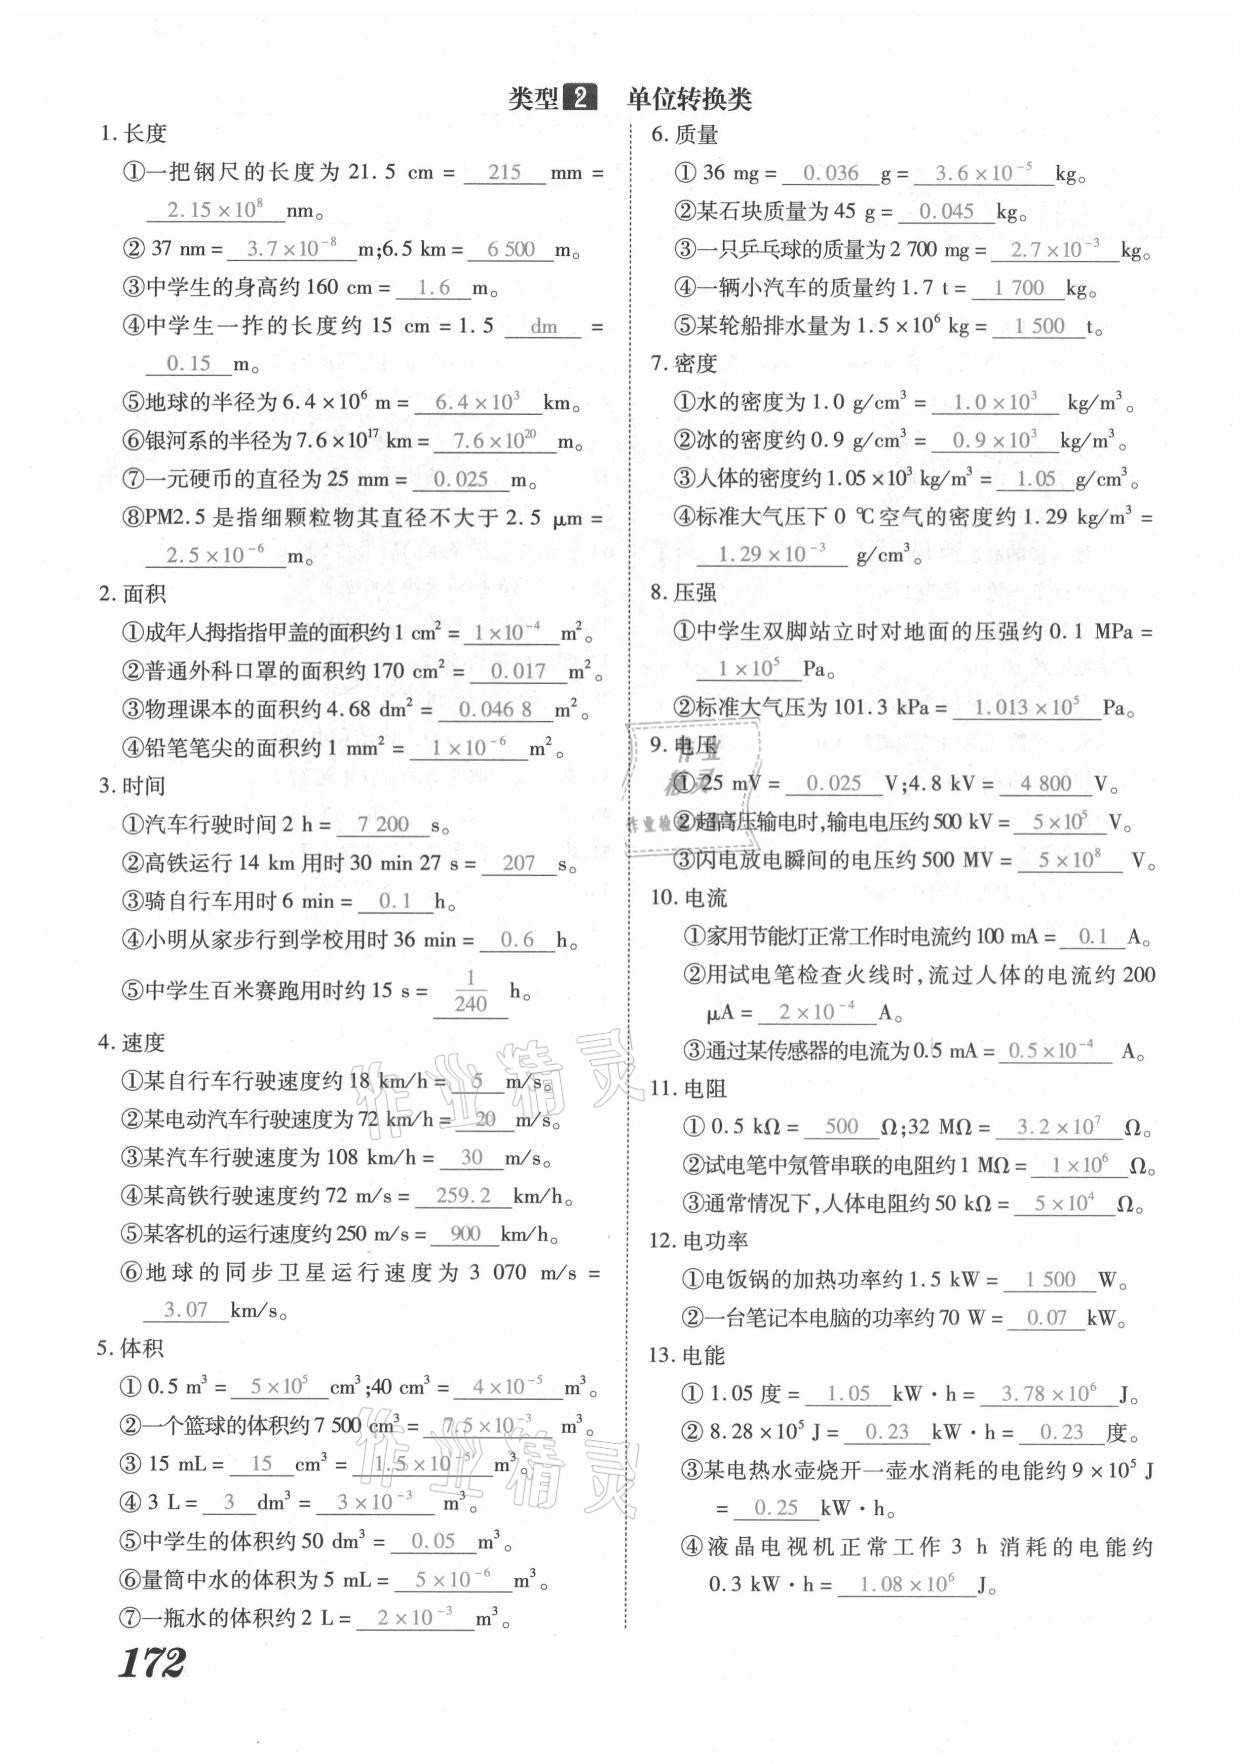 类型2 单位转换类
1. 长度
①一把钢尺的长度为 21.5 cm = 215 mm =
2.15×10⁸ nm。
② 37 nm = 3.7×10⁻⁸ m;6.5 km = 6 500 m。
③中学生的身高约 160 cm = 1.6 m。
④中学生一拃的长度约 15 cm = 1.5 dm =
0.15 m。
⑤地球的半径为 6.4×10⁶ m = 6.4×10³ km。
⑥银河系的半径为 7.6×10¹⁷ km = 7.6×10²⁰ m。
⑦一元硬币的直径为 25 mm = 0.025 m。
⑧PM2.5 是指细颗粒物其直径不大于 2.5 μm =
2.5×10⁻⁶ m。
2. 面积
①成年人拇指指甲盖的面积约 1 cm² = 1×10⁻⁴ m²。
②普通外科口罩的面积约 170 cm² = 0.017 m²。
③物理课本的面积约 4.68 dm² = 0.046 8 m²。
④铅笔笔尖的面积约 1 mm² = 1×10⁻⁶ m²。
3. 时间
①汽车行驶时间 2 h = 7 200 s。
②高铁运行 14 km 用时 30 min 27 s = 207 s。
③骑自行车用时 6 min = 0.1 h。
④小明从家步行到学校用时 36 min = 0.6 h。
⑤中学生百米赛跑用时约 15 s = 1/240 h。
4. 速度
①某自行车行驶速度约 18 km/h = 5 m/s。
②某电动汽车行驶速度为 72 km/h = 20 m/s。
③某汽车行驶速度为 108 km/h = 30 m/s。
④某高铁行驶速度约 72 m/s = 259.2 km/h。
⑤某客机的运行速度约 250 m/s = 900 km/h。
⑥地球的同步卫星运行速度为 3 070 m/s =
3.07 km/s。
5. 体积
① 0.5 m³ = 5×10⁵ cm³;40 cm³ = 4×10⁻⁵ m³。
②一个篮球的体积约 7 500 cm³ = 7.5×10⁻³ m³。
③ 15 mL = 15 cm³ = 1.5×10⁻⁵ m³。
④ 3 L = 3 dm³ = 3×10⁻³ m³。
⑤中学生的体积约 50 dm³ = 0.05 m³。
⑥量筒中水的体积为 5 mL = 5×10⁻⁶ m³。
⑦一瓶水的体积约 2 L = 2×10⁻³ m³。
172
6. 质量
① 36 mg = 0.036 g = 3.6×10⁻⁵ kg。
②某石块质量为 45 g = 0.045 kg。
③一只乒乓球的质量为 2 700 mg = 2.7×10⁻³ kg。
④一辆小汽车的质量约 1.7 t = 1 700 kg。
⑤某轮船排水量为 1.5×10⁶ kg = 1 500 t。
7. 密度
①水的密度为 1.0 g/cm³ = 1.0×10³ kg/m³。
②冰的密度约 0.9 g/cm³ = 0.9×10³ kg/m³。
③人体的密度约 1.05×10³ kg/m³ = 1.05 g/cm³。
④标准大气压下 0 ℃空气的密度约 1.29 kg/m³ =
1.29×10⁻³ g/cm³。
8. 压强
①中学生双脚站立时对地面的压强约 0.1 MPa =
1×10⁵ Pa。
②标准大气压为 101.3 kPa = 1.013×10⁵ Pa。
9. 电压
①25 mV = 0.025 V;4.8 kV = 4 800 V。
②超高压输电时,输电电压约 500 kV = 5×10⁵ V。
③闪电放电瞬间的电压约 500 MV = 5×10⁸ V。
10. 电流
①家用节能灯正常工作时电流约 100 mA = 0.1 A。
②用试电笔检查火线时,流过人体的电流约 200
μA = 2×10⁻⁴ A。
③通过某传感器的电流为 0.5 mA = 0.5×10⁻⁴ A。
11. 电阻
① 0.5 kΩ = 500 Ω;32 MΩ = 3.2×10⁷ Ω。
②试电笔中氖管串联的电阻约 1 MΩ = 1×10⁶ Ω。
③通常情况下,人体电阻约 50 kΩ = 5×10⁴ Ω。
12. 电功率
①电饭锅的加热功率约 1.5 kW = 1 500 W。
②一台笔记本电脑的功率约 70 W = 0.07 kW。
13. 电能
① 1.05 度 = 1.05 kW·h = 3.78×10⁶ J。
② 8.28×10⁵ J = 0.23 kW·h = 0.23 度。
③某电热水壶烧开一壶水消耗的电能约 9×10⁵ J
= 0.25 kW·h。
④液晶电视机正常工作 3 h 消耗的电能约
0.3 kW·h = 1.08×10⁶ J。
作业精灵
作业精灵
作业
精灵